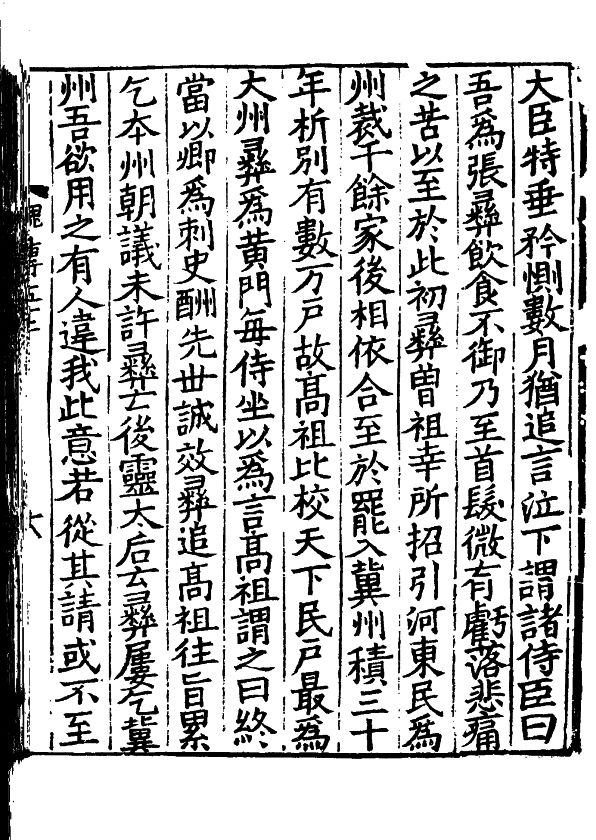 大臣特垂矜惻數月猶追言泣下謂諸侍臣曰
吾爲張彞飲食不御乃至首髮微有虧落悲痛
之苦以至於此初彞曾祖幸所招引河東民爲
州裁千餘家後相依合至於罷入冀州積三十
年析別有數万戶故高祖比校天下民戶最爲
大州彞爲黄門每侍坐以爲言高祖謂之曰終
當以卿爲刺史酬先世誠效彞追高祖往旨累
乞本州朝議未許彞亡後靈太后云彞屢乞冀
州吾欲用之有人違我此意若從其請或不至
魏書
六